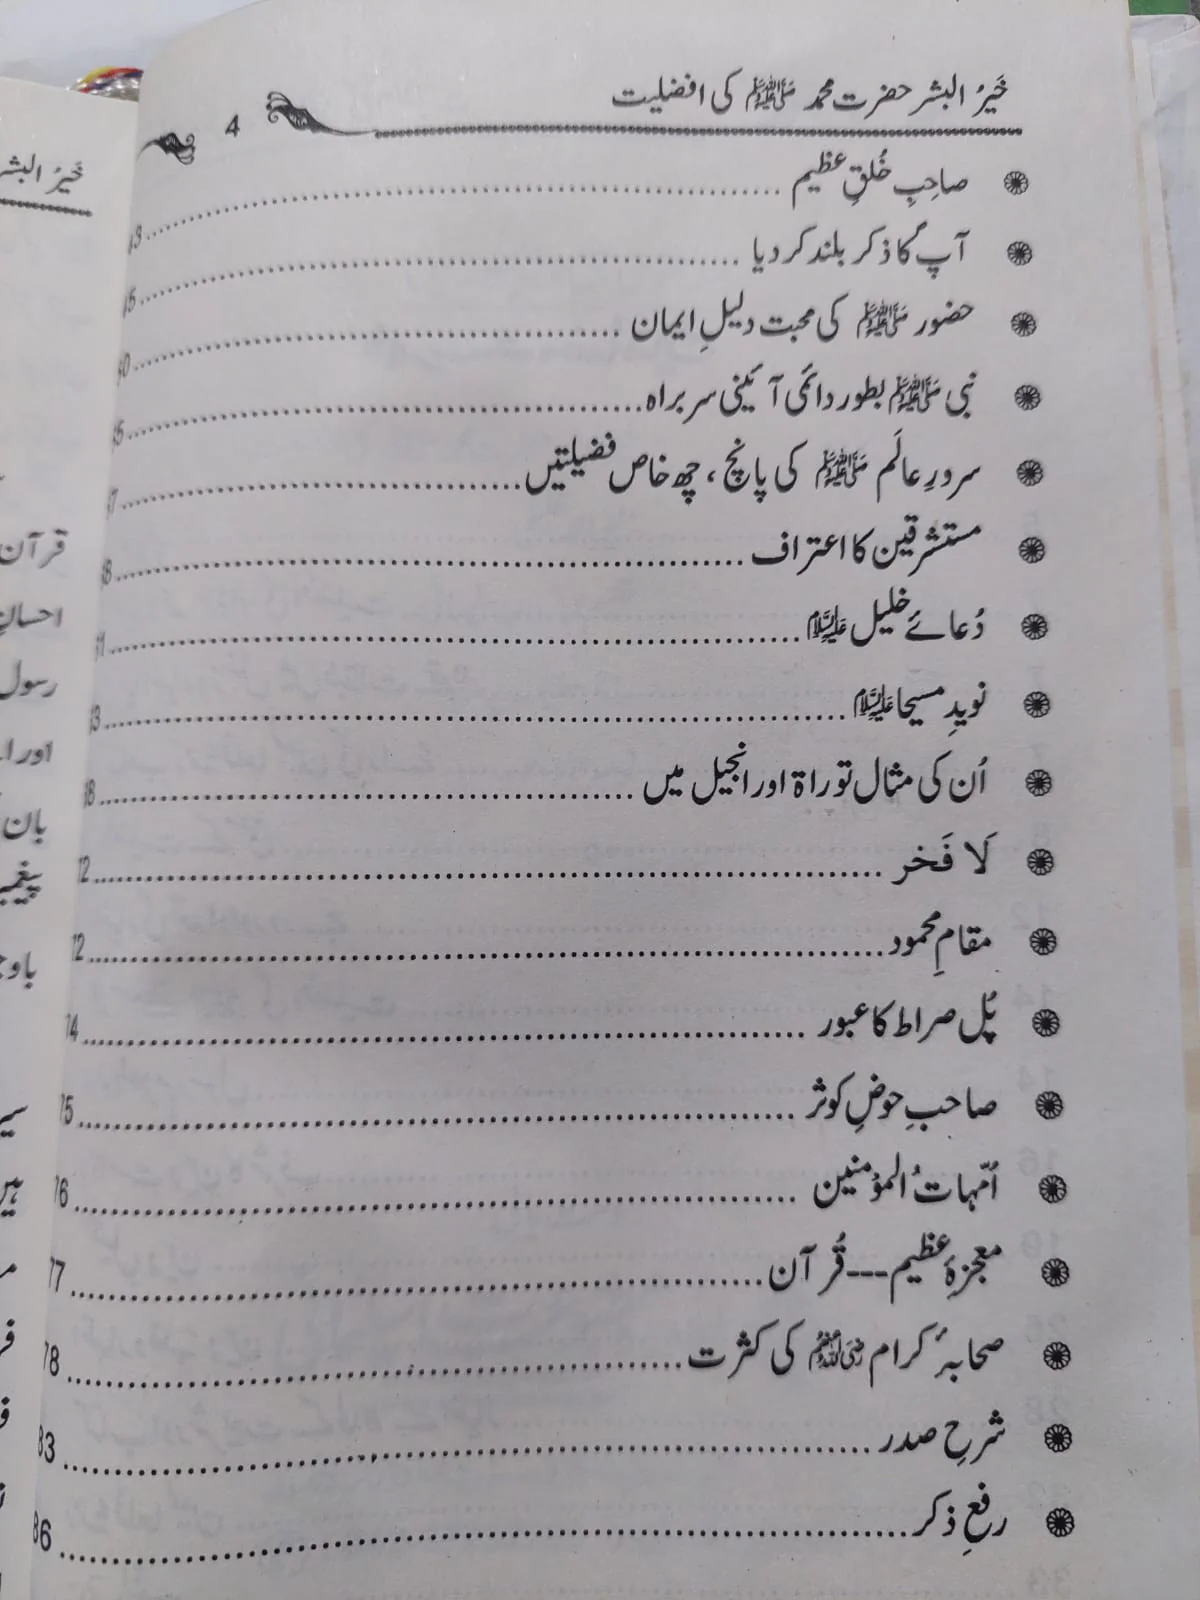 خَیرُ البشر حضرت محمد ﷺ کی افضلیت 4
صاحِبِ خُلقِ عظیم
آپؐ کا ذکر بلند کر دیا
حضور ﷺ کی محبت دلیلِ ایمان
نبی ﷺ بطور دائمی آئینی سربراہ
سرورِ عالَم ﷺ کی پانچ، چھ خاص فضیلتیں
مستشرقین کا اعتراف
دُعائے خلیل علیہ السلام
نویدِ مسیحا علیہ السلام
اُن کی مثال توراۃ اور انجیل میں
لَا فَخر
مقامِ محمود
پُل صراط کا عبور
صاحبِ حوضِ کوثر
اُمّہاتُ المؤمنین
معجزۂ عظیم---قُرآن 77
صحابہؓ کرام رضی اللہ عنہم کی کثرت 78
شرحِ صدر 83
رفعِ ذکر 86
خَیرُ البشر
قرآن
رسول